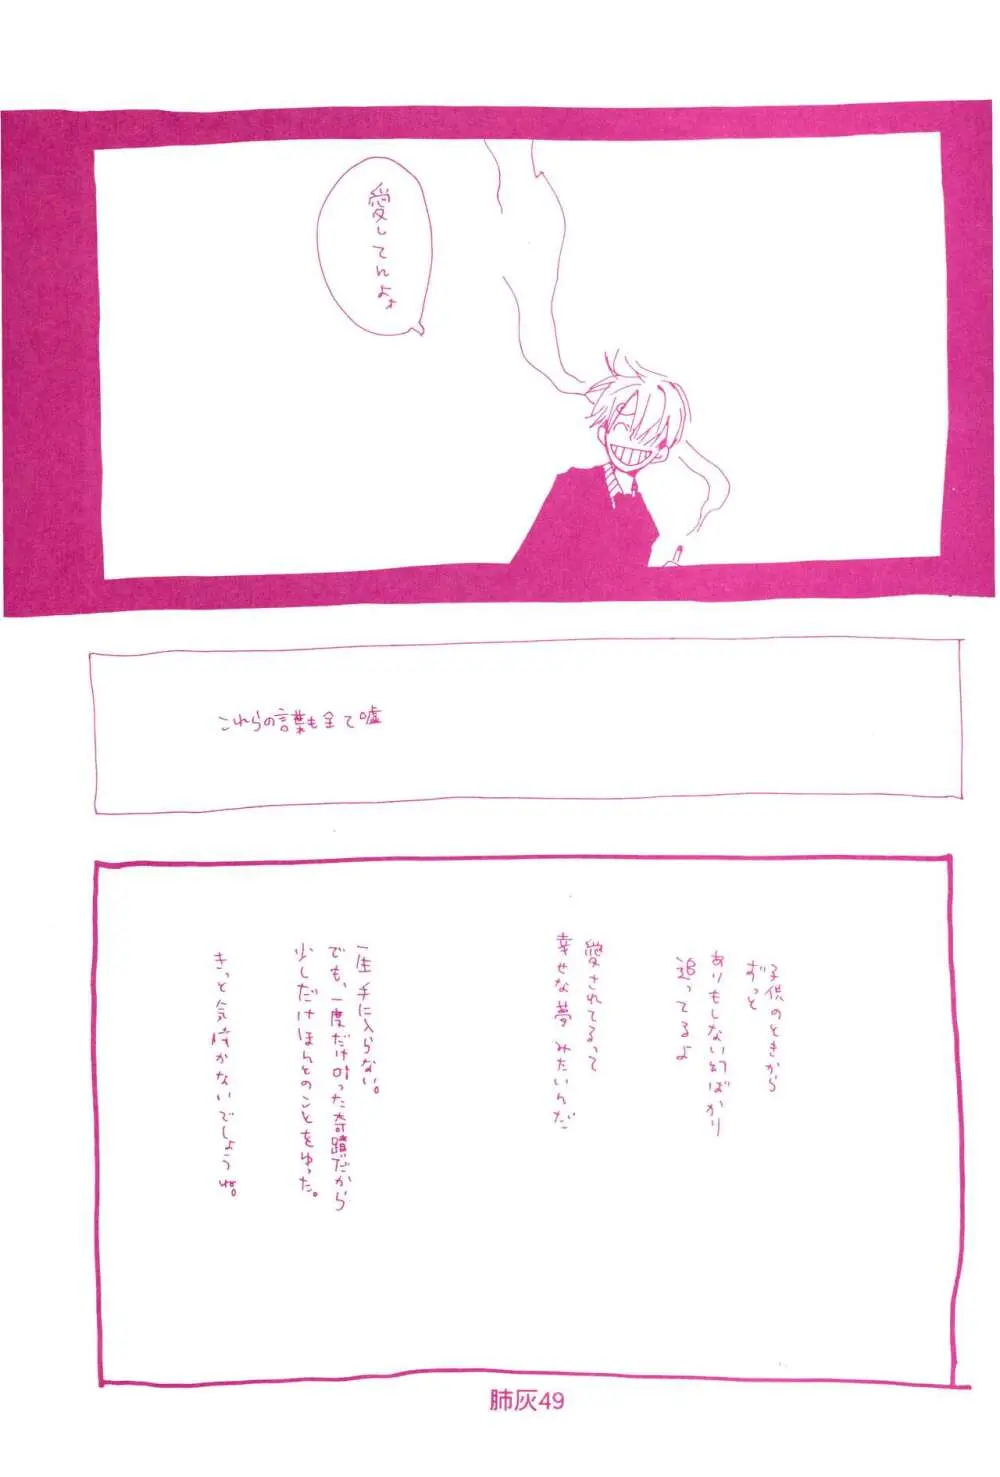 愛してんよォ
これらの言葉も全て嘘
子供のときから
ずっと
ありもしない幻ばかり
追ってるよ
愛されてるって
幸せな夢みたいんだ
一生手に入らない。
でも、一度だけ叶った奇蹟だから
少しだけほんとのことをゆった。
きっと気疼かないでしょうね。
肺灰49